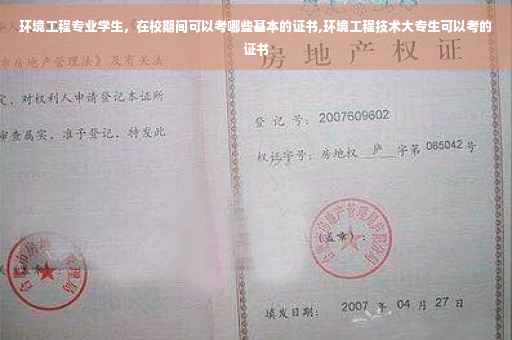 环境工程专业学生，在校期间可以考哪些基本的证书,环境工程技术大专生可以考的
证书
房地产权证
市房地产管理法》及有关法
定，对权利人申请登记本证所
审查属实，准予登记，特发此
登记号：2007609602
权证字号：房地权 庐 字第 085042 号
房地产管理局
(盖章)：
填发日期： 2007 年 04 月 27 日